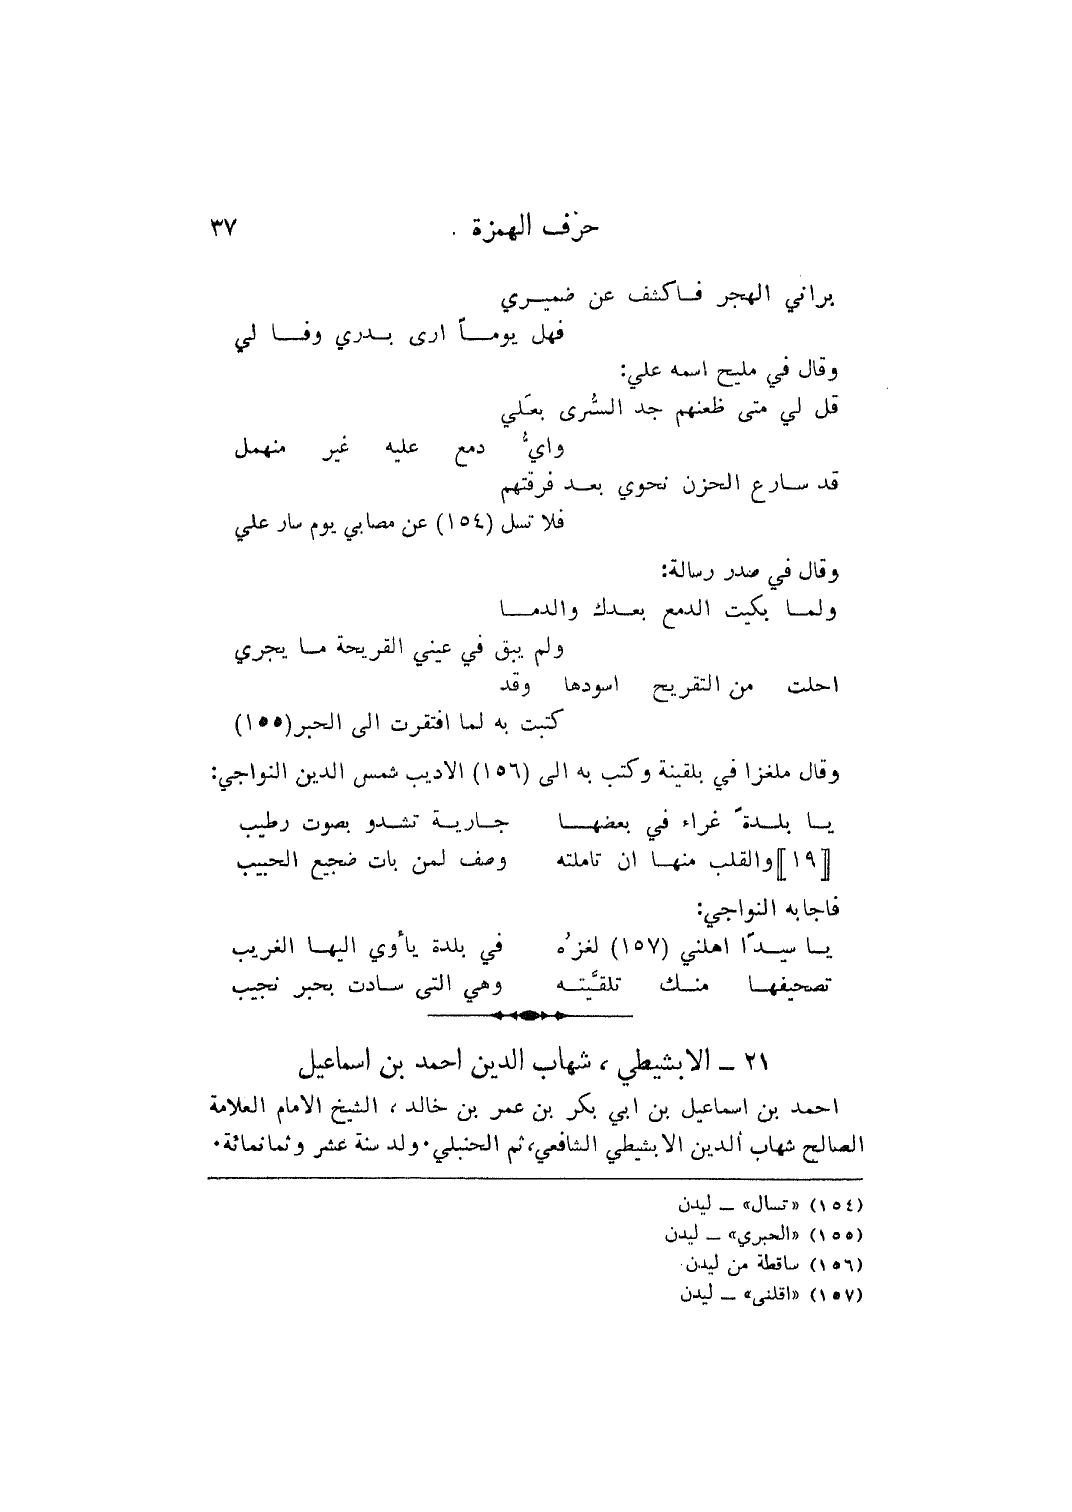 حرف الهمزة . ٣٧
براني الهجر فاكشف عن ضميري
فهل يوماً ارى بدري وفا لي
وقال في مليح اسمه علي:
قل لي متى ظعنهم جد السُّرى بعَلي
وايُّ دمع عليه غير منهمل
قد سارع الحزن نحوي بعد فرقتهم
فلا تسل (١٥٤) عن مصابي يوم سار علي
وقال في صدر رسالة:
ولما بكيت الدمع بعدك والدما
ولم يبق في عيني القريحة ما يجري
احلت من التقريح اسودها وقد
كتبت به لما افتقرت الى الحبر(١٥٥)
وقال ملغزا في بلقينة وكتب به الى (١٥٦) الاديب شمس الدين النواجي:
يا بلدة غراء في بعضها جارية تشدو بصوت رطيب
[١٩]والقلب منها ان تاملته وصف لمن بات ضجيع الحبيب
فاجابه النواجي:
يا سيدًا اهلني (١٥٧) لغزُه في بلدة يأوي اليها الغريب
تصحيفها منك تلقَّيته وهي التي سادت بحبر نجيب
٢١ ــ الابشيطي ، شهاب الدين احمد بن اسماعيل
احمد بن اسماعيل بن ابي بكر بن عمر بن خالد ، الشيخ الامام العلامة
الصالح شهاب ألدين الابشيطي الشافعي، ثم الحنبلي٠ ولد سنة عشر وثمانمائة٠
(١٥٤) «تسال» ــ ليدن
(١٥٥) «الحبري» ــ ليدن
(١٥٦) ساقطة من ليدن
(١٥٧) «اقلنى» ــ ليدن